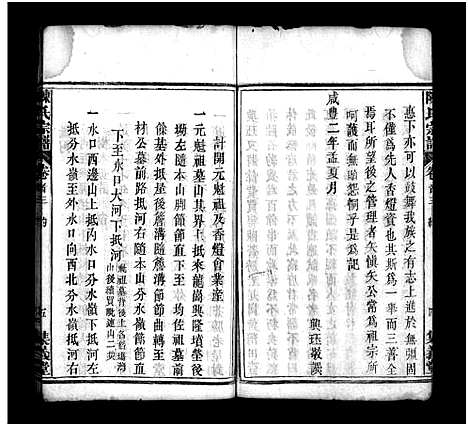 陳氏宗譜
惠下亦可以鼓舞我族之有志上進於無彊固
不僅為先人香燈資也其斯為一舉而三善全
焉耳所望後之管理者矢慎矢公常為祖宗所
呵護而無怨恫乎是為記
咸豐二年孟夏月
興珏敬譔
集義堂
陳氏宗譜
計開元魁祖及香燈會業產
一元魁祖墓山其界上抵來龍崗興隆墳塋後
坳左隨本山分水嶺節節直下至均佐祖墓前
備外抵梁屋後簷溝隨簷溝節節曲轉至
材公墓前路抵河右隨本山分水嶺節節傾
下至水口大河下抵河
一水口西邊山上抵內水口分水嶺下抵河左
分水嶺至外水口向西北分水嶺抵河右
集義堂